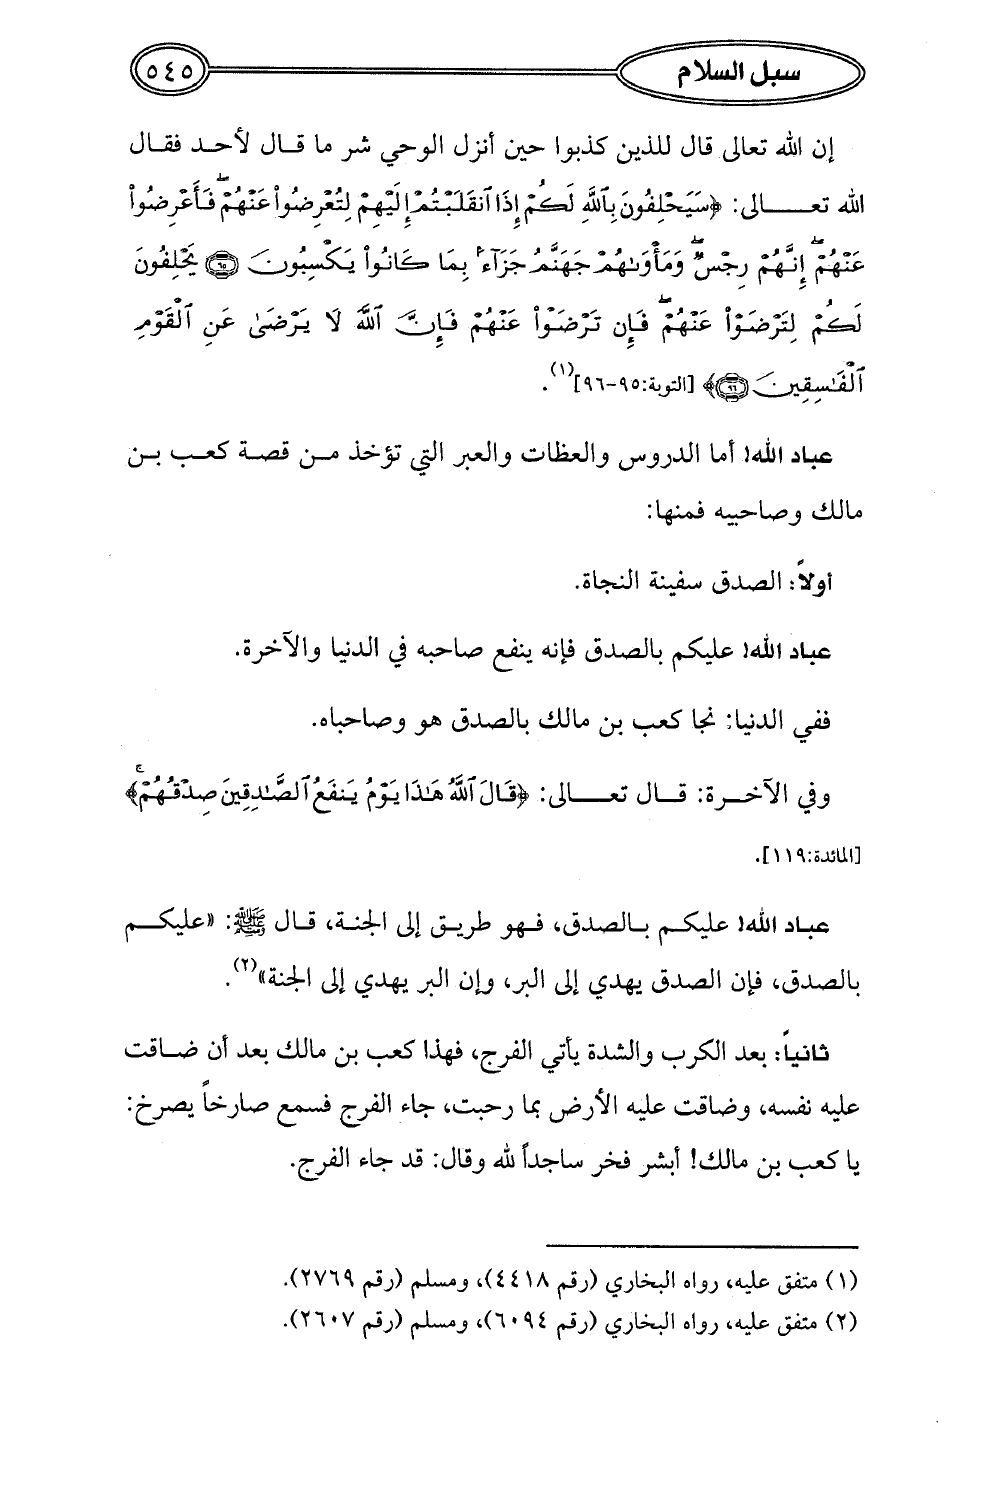 سبل السلام ٥٤٥
إن الله تعالى قال للذين كذبوا حين أنزل الوحي شر ما قال لأحد فقال
الله تعالى: ﴿سَيَحْلِفُونَ بِٱللَّهِ لَكُمْ إِذَا ٱنقَلَبْتُمْ إِلَيْهِمْ لِتُعْرِضُوا۟ عَنْهُمْ ۖ فَأَعْرِضُوا۟
عَنْهُمْ ۖ إِنَّهُمْ رِجْسٌ ۖ وَمَأْوَىٰهُمْ جَهَنَّمُ جَزَآءًۢ بِمَا كَانُوا۟ يَكْسِبُونَ ﴿٩٥﴾ يَحْلِفُونَ
لَكُمْ لِتَرْضَوْا۟ عَنْهُمْ ۖ فَإِن تَرْضَوْا۟ عَنْهُمْ فَإِنَّ ٱللَّهَ لَا يَرْضَىٰ عَنِ ٱلْقَوْمِ
ٱلْفَـٰسِقِينَ ﴿٩٦﴾﴾ [التوبة:٩٥-٩٦](١).
عباد الله! أما الدروس والعظات والعبر التي تؤخذ من قصة كعب بن
مالك وصاحبيه فمنها:
أولاً: الصدق سفينة النجاة.
عباد الله! عليكم بالصدق فإنه ينفع صاحبه في الدنيا والآخرة.
ففي الدنيا: نجا كعب بن مالك بالصدق هو وصاحباه.
وفي الآخرة: قال تعالى: ﴿قَالَ ٱللَّهُ هَـٰذَا يَوْمُ يَنفَعُ ٱلصَّـٰدِقِينَ صِدْقُهُمْ ۚ﴾
[المائدة:١١٩].
عباد الله! عليكم بالصدق، فهو طريق إلى الجنة، قال ﷺ: «عليكم
بالصدق، فإن الصدق يهدي إلى البر، وإن البر يهدي إلى الجنة»(٢).
ثانياً: بعد الكرب والشدة يأتي الفرج، فهذا كعب بن مالك بعد أن ضاقت
عليه نفسه، وضاقت عليه الأرض بما رحبت، جاء الفرج فسمع صارخاً يصرخ:
يا كعب بن مالك! أبشر فخر ساجداً لله وقال: قد جاء الفرج.
(١) متفق عليه، رواه البخاري (رقم ٤٤١٨)، ومسلم (رقم ٢٧٦٩).
(٢) متفق عليه، رواه البخاري (رقم ٦٠٩٤)، ومسلم (رقم ٢٦٠٧).